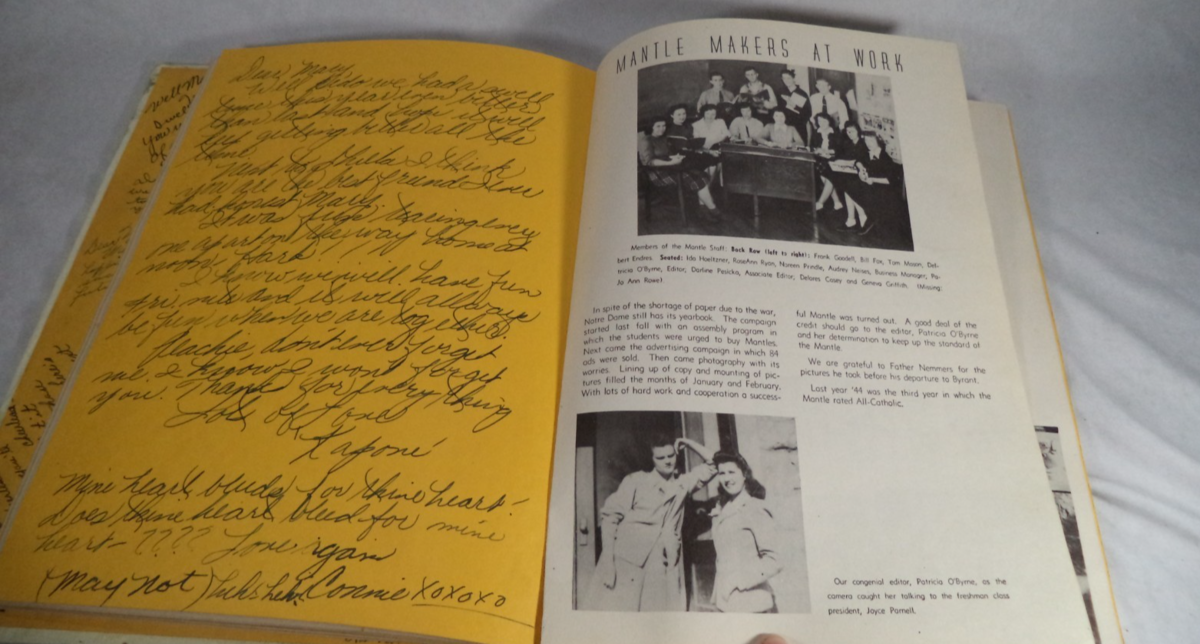 Dear Mary,
Well kido we had a swell
time this year even better
than last and hope it will
be getting better all the
time.
I think
you are the best friend I ever
had, honest Mary.
It was fun
me apart on the way home at
noon,
I know we will have fun
and it will always
be fun when we are together.
don't ever forget
me I know I won't forget
you. Thanks for everything
Lots of Love
Mine heart bludes for thine heart-
Does thine heart bleed for mine
heart- ???? Love again
(May not) Connie xoxoxo
MANTLE MAKERS AT WORK
Members of the Mantle Staff: Back Row (left to right): Frank Goodell, Bill Fox, Tom Mason, Del-
bert Endres. Seated: Ida Hoeltzner, RoseAnn Ryan, Noreen Prindle, Audrey Neises, Business Manager, Pa-
tricia O'Byrne, Editor, Darlene Pesicka, Associate Editor, Delores Casey and Geneva Griffith. (Missing:
Jo Ann Rowe).
In spite of the shortage of paper due to the war,
Notre Dame still has its yearbook. The campaign
started last fall with an assembly program in
which the students were urged to buy Mantles.
Next came the advertising campaign in which 84
ads were sold. Then came photography with its
worries. Lining up of copy and mounting of pic-
tures filled the months of January and February.
With lots of hard work and cooperation a success-
ful Mantle was turned out. A good deal of the
credit should go to the editor, Patricia O'Byrne
and her determination to keep up the standard of
the Mantle.
We are grateful to Father Nemmers for the
pictures he took before his departure to Bryant.
Last year '44 was the third year in which the
Mantle rated All-Catholic.
Our congenial editor, Patricia O'Byrne, as the
camera caught her talking to the freshman class
president, Joyce Parnell.